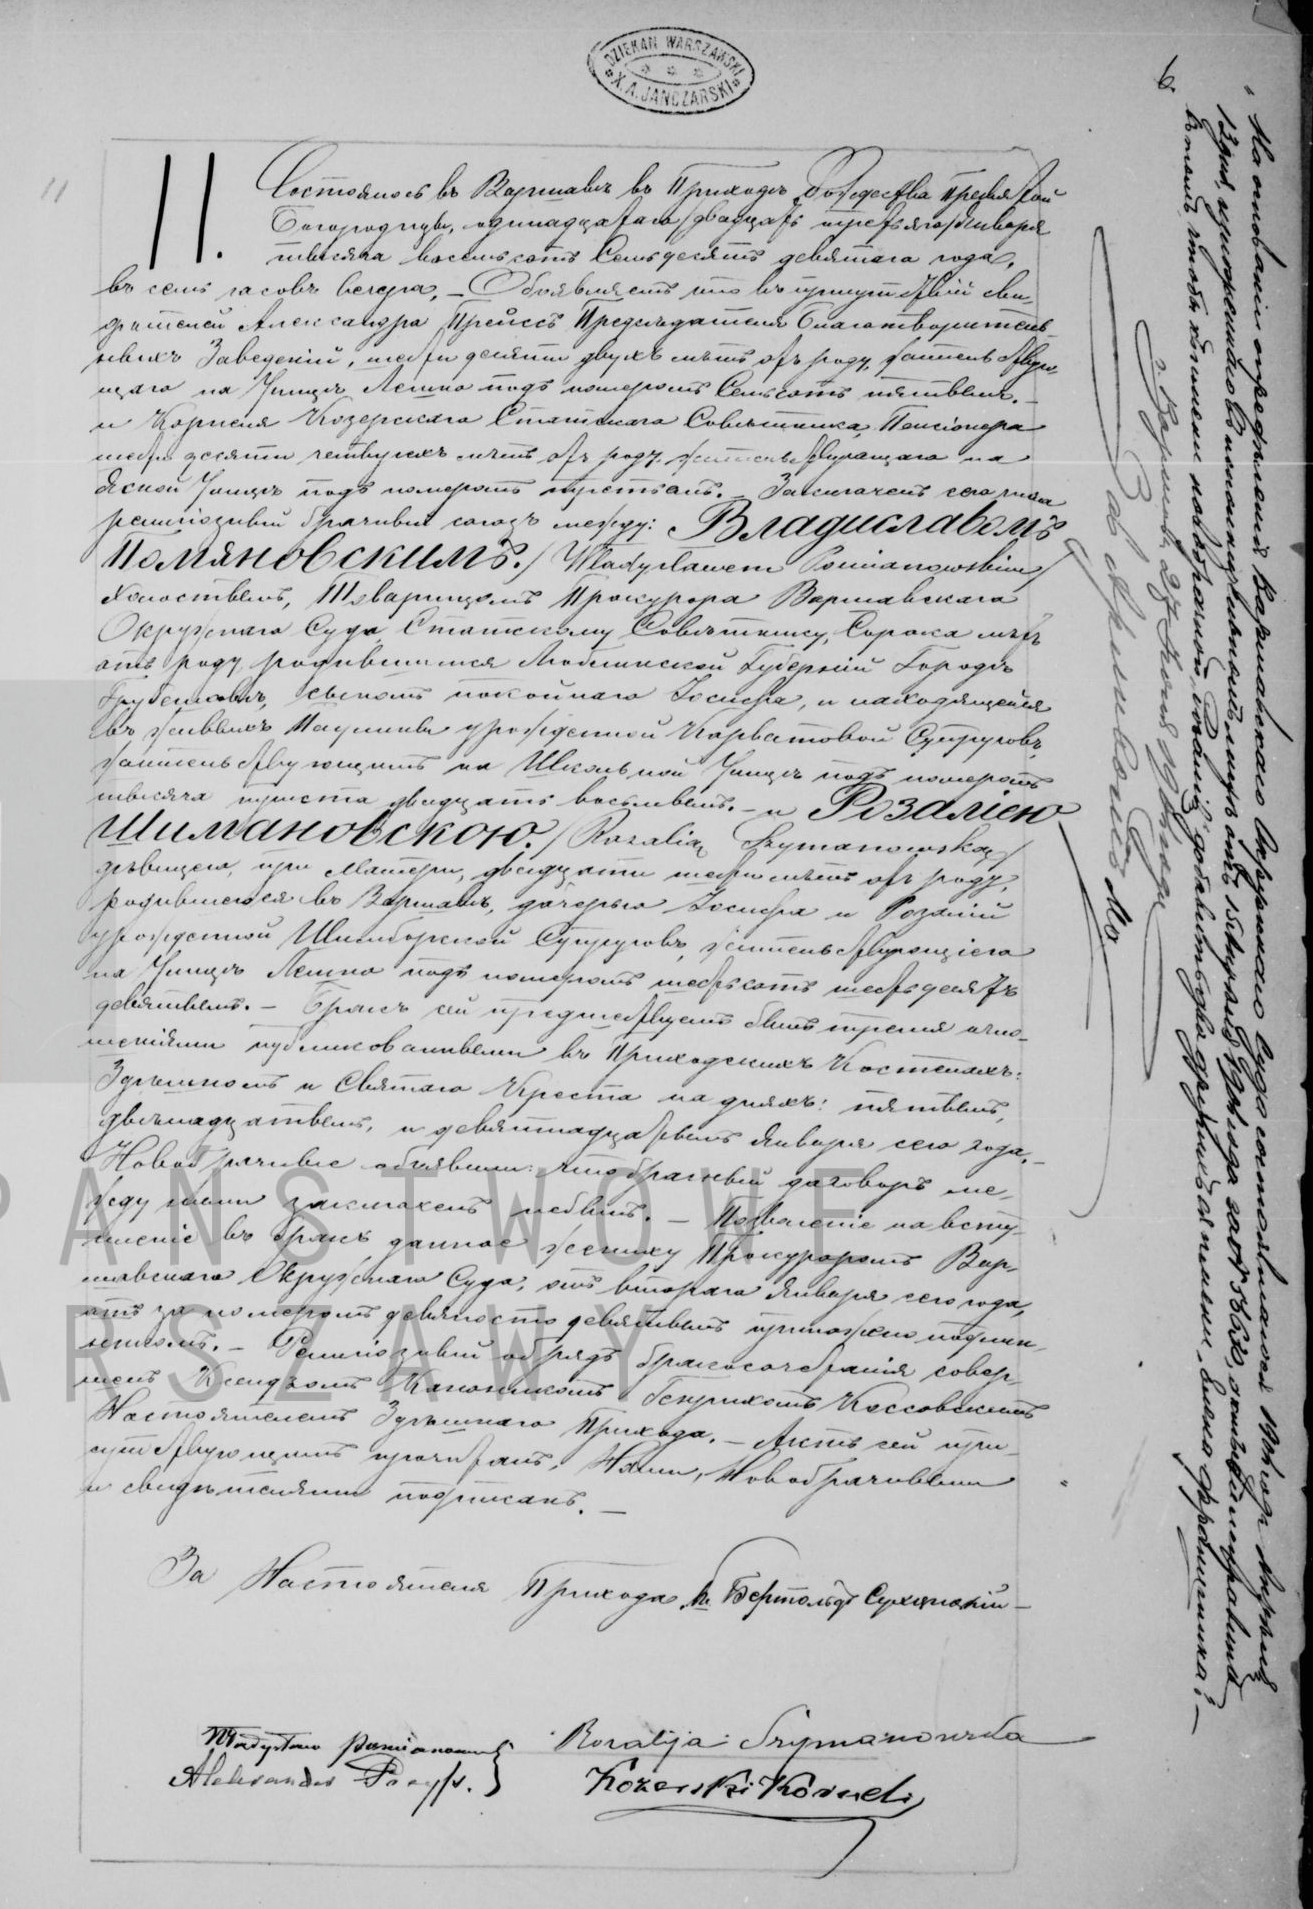 DZIEKAN WARSZAWSKI
X. A. JANCZARSKI
6
11
11.
Состоялось въ Варшавѣ въ Приходѣ Рождества Пресвятой
Богородицы, одинадцатаго /двадцать третьяго/ Января
тысяча восемьсотъ Семьдесятъ девятаго года,
въ семь часовъ вечера, – Объявляемъ что въ присутствіи сви-
дѣтелей Александра Прейсъ Предсѣдателя Благотворитель-
ныхъ Заведеній, шестидесяти двухъ лѣтъ отъ роду, жительствую-
щаго на Улицѣ Лешно подъ номеромъ Семьсотъ пятымъ. –
и Корнеля Козерскаго Статскаго Совѣтника, Пенсіонера
шестидесяти четырехъ лѣтъ отъ роду жительствующаго на
Ясной Улицѣ подъ номеромъ третьимъ. – Заключенъ сего числа
религіозный брачный союзъ между: Владиславомъ
Помяновскимъ. /Władysławem Pomianowskim/
Холостымъ, Товарищомъ Прокурора Варшавскаго
Окружнаго Суда, Статскому Совѣтнику, Сорока лѣтъ
отъ роду родившимся Люблинской Губерніи Городѣ
Грубешовѣ, сыномъ покойнаго Іосифа, и находящейся
въ живыхъ Паулины урожденной Карватовой Супруговъ,
жительствующимъ на Школьной Улицѣ подъ номеромъ
тысяча триста двадцать восьмымъ. – и Розаліею
Шимановскою. /Rozalią Szymanowską/
дѣвицею, при Матери, двадцати шести лѣтъ отъ роду,
родившеюся въ Варшавѣ, дочерью Іосифа и Розаліи
урожденной Шимборской Супруговъ, жительствующею
на Улицѣ Лешно подъ номеромъ шестьсотъ шестьдесятъ
девятымъ. – Бракъ сей предшествуемъ былъ тремя огла-
шеніями публикованными въ Приходскихъ Костелахъ:
Здѣшномъ и Святаго Креста на дняхъ: пятымъ,
двѣнадцатымъ, и девятнадцатымъ Января сего года. –
Новобрачные объявили что брачный договоръ ме-
жду ними заключенъ небылъ. – Позволеніе на всту-
пленіе въ бракъ данное жениху Прокуроромъ Вар-
шавскаго Окружнаго Суда, отъ втораго Января сего года,
отъ за номеромъ девяносто девятымъ приложено подлин-
никомъ. – Религіозный обрядъ бракосочетанія совер-
шенъ Ксендзомъ Каноникомъ Генрихомъ Коссовскимъ
Настоятелемъ Здѣшнаго Прихода. – Актъ сей при-
сутствующимъ прочитанъ, Нами, Новобрачными
и свидѣтелями подписанъ. –
За Настоятеля Прихода, К. Бертольдъ
Władysław Pomianowski Rozalija Szymanowska
Aleksander Preyss. Kozerski Korneli
На основаніи опредѣленія Варшавскаго Окружнаго Суда состоявшагося
въ томъ, чтобы
г. Варшава 27
PAŃSTWOWE
WARSZAWY